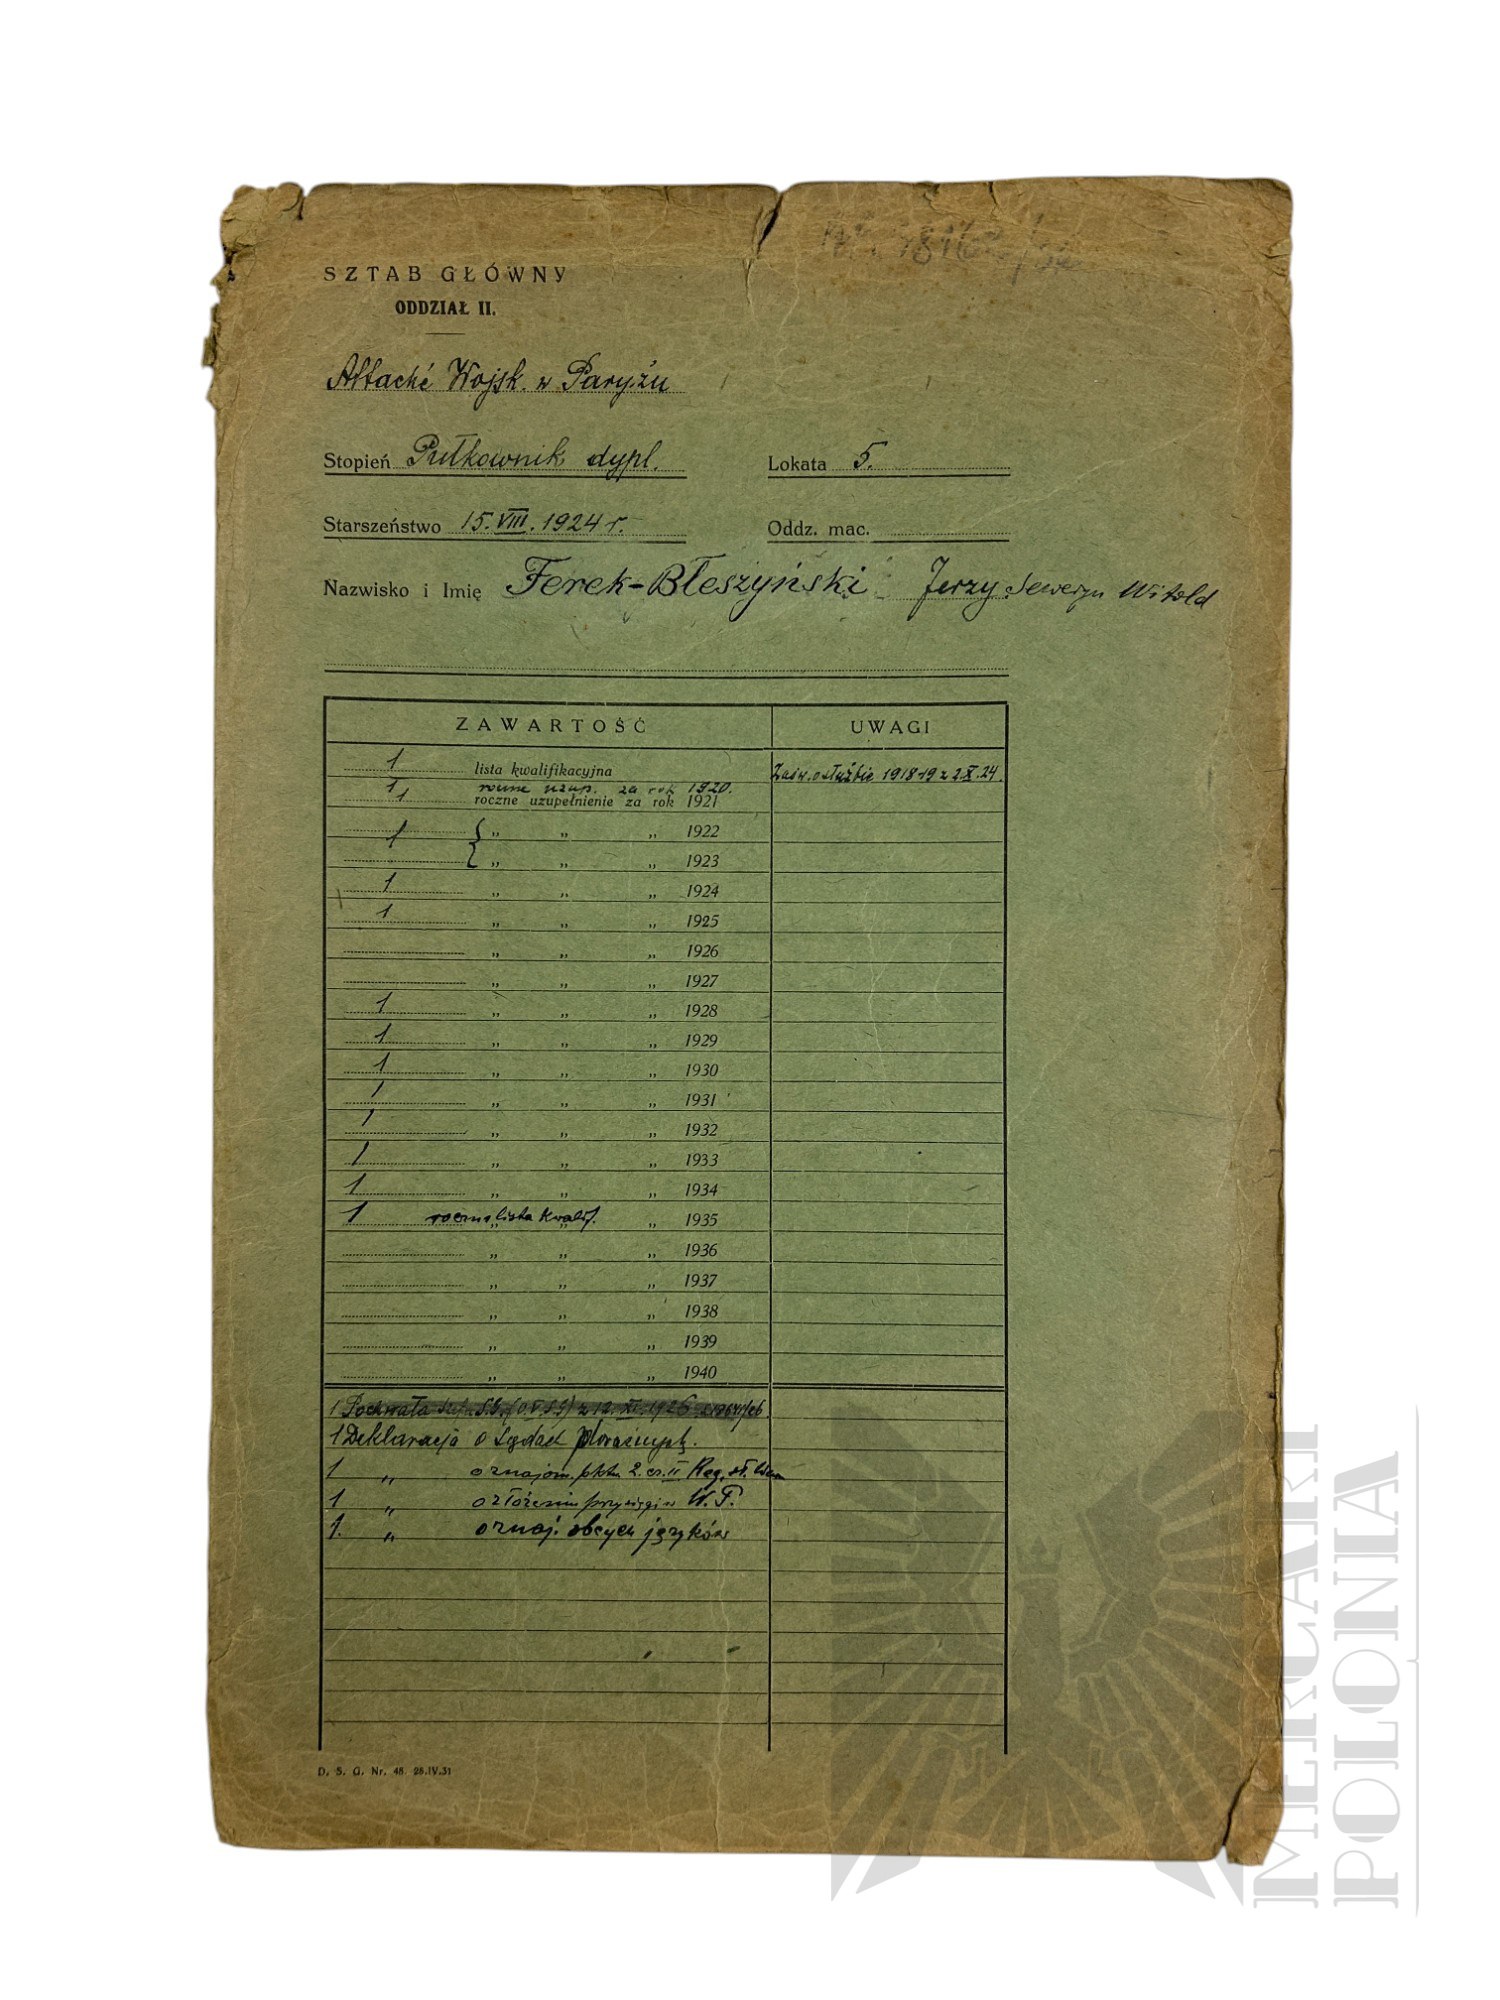 SZTAB GŁÓWNY
ODDZIAŁ II.
Attaché Wojsk. w Paryżu
Stopień Pułkownik dypl. Lokata 5.
Starszeństwo 15.VIII.1924 r. Oddz. mac.
Nazwisko i Imię Ferek-Błeszyński Jerzy Seweryn Witold
ZAWARTOŚĆ UWAGI
1 lista kwalifikacyjna Zaśw. o służbie 1918-19 z 2.X.24.
1 roczne uzup. za rok 1920.
1 roczne uzupełnienie za rok 1921
1 { „ „ „ 1922
{ „ „ „ 1923
1 „ „ „ 1924
1 „ „ „ 1925
„ „ „ 1926
„ „ „ 1927
1 „ „ „ 1928
1 „ „ „ 1929
1 „ „ „ 1930
1 „ „ „ 1931
1 „ „ „ 1932
1 „ „ „ 1933
1 „ „ „ 1934
1 roczna lista kwalif. „ 1935
„ „ „ 1936
„ „ „ 1937
„ „ „ 1938
„ „ „ 1939
„ „ „ 1940
1 Pochwała Szefa S.G. (O.V.SG) z 12.XI.1926
1 Deklaracja o
1 „ o znajom. pktu 2. cz. II Reg. sł.
1 „ o złożeniu przysięgi w W.P.
1. „ o znaj. obcych języków
D. S. G. Nr. 48. 28.IV.31
MERCARI
POLONIA